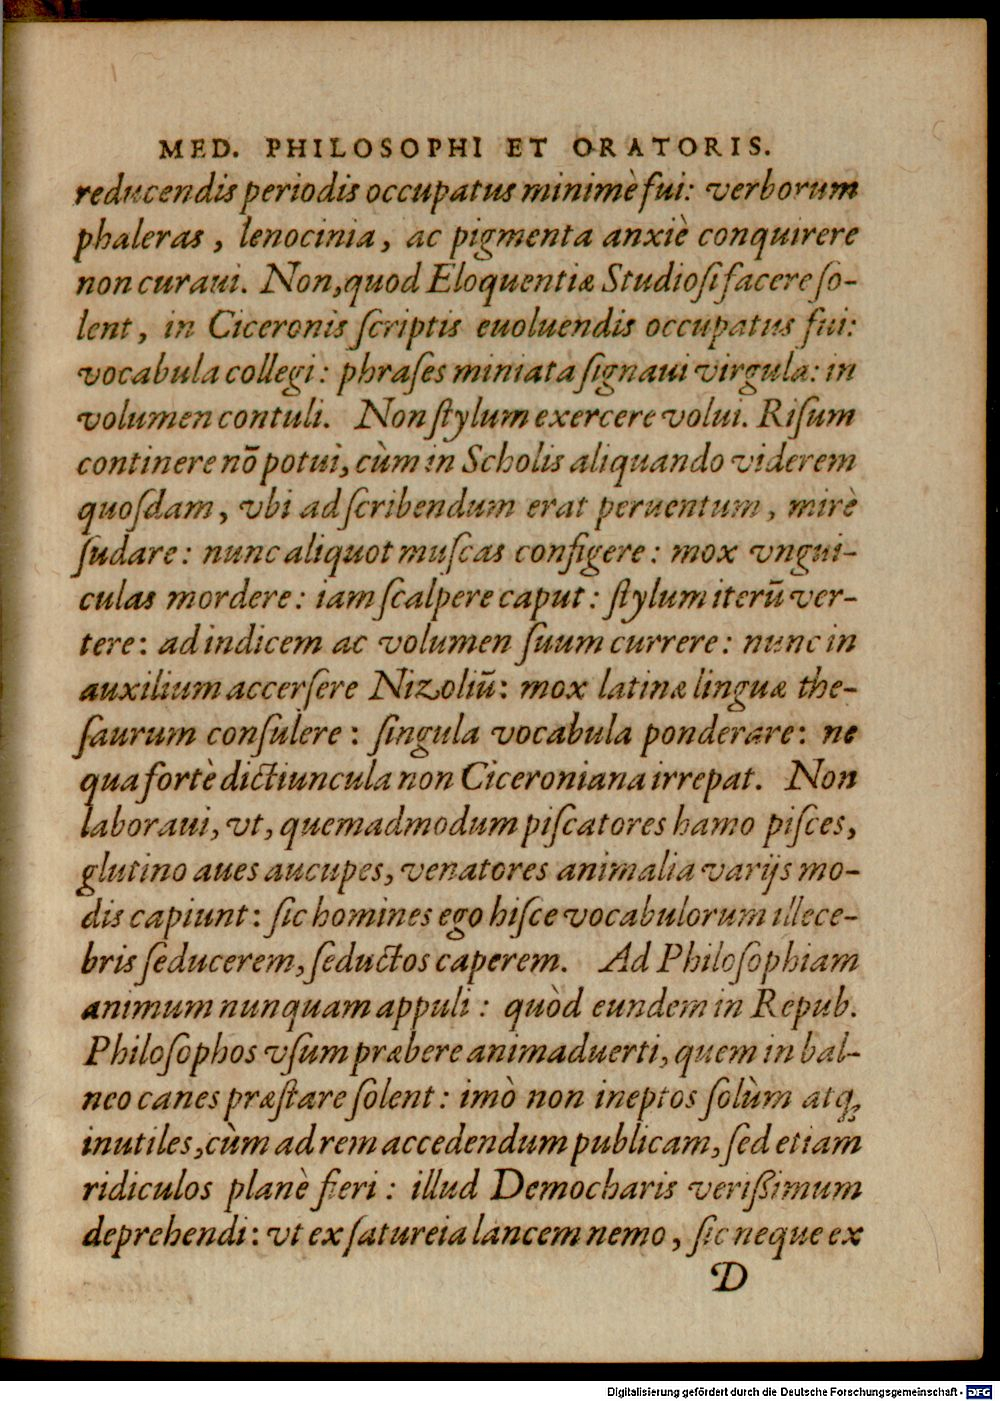 MED. PHILOSOPHI ET ORATORIS.
reducendis periodis occupatus minimè fui: verborum
phaleras, lenocinia, ac pigmenta anxiè conquirere
non curaui. Non, quod Eloquentiæ Studioſi facere ſo-
lent, in Ciceronis ſcriptis euoluendis occupatus fui:
vocabula collegi: phraſes miniata ſignaui virgula: in
volumen contuli. Non ſtylum exercere volui. Riſum
continere nō potui, cùm in Scholis aliquando viderem
quoſdam, vbi ad ſcribendum erat peruentum, mirè
ſudare: nunc aliquot muſcas configere: mox vngui-
culas mordere: iam ſcalpere caput: ſtylum iterũ ver-
tere: ad indicem ac volumen ſuum currere: nunc in
auxilium accerſere Nizoliũ: mox latinæ linguæ the-
ſaurum conſulere: ſingula vocabula ponderare: ne
qua fortè dictiuncula non Ciceroniana irrepat. Non
laboraui, vt, quemadmodum piſcatores hamo piſces,
glutino aues aucupes, venatores animalia varijs mo-
dis capiunt: ſic homines ego hiſce vocabulorum illece-
bris ſeducerem, ſeductos caperem. Ad Philoſophiam
animum nunquam appuli: quòd eundem in Repub.
Philoſophos vſum præbere animaduerti, quem in bal-
neo canes præſtare ſolent: imò non ineptos ſolùm atq;
inutiles, cùm ad rem accedendum publicam, ſed etiam
ridiculos planè fieri: illud Democharis veriſſimum
deprehendi: vt ex ſatureia lancem nemo, ſic neque ex
D
Digitalisierung gefördert durch die Deutsche Forschungsgemeinschaft - DFG